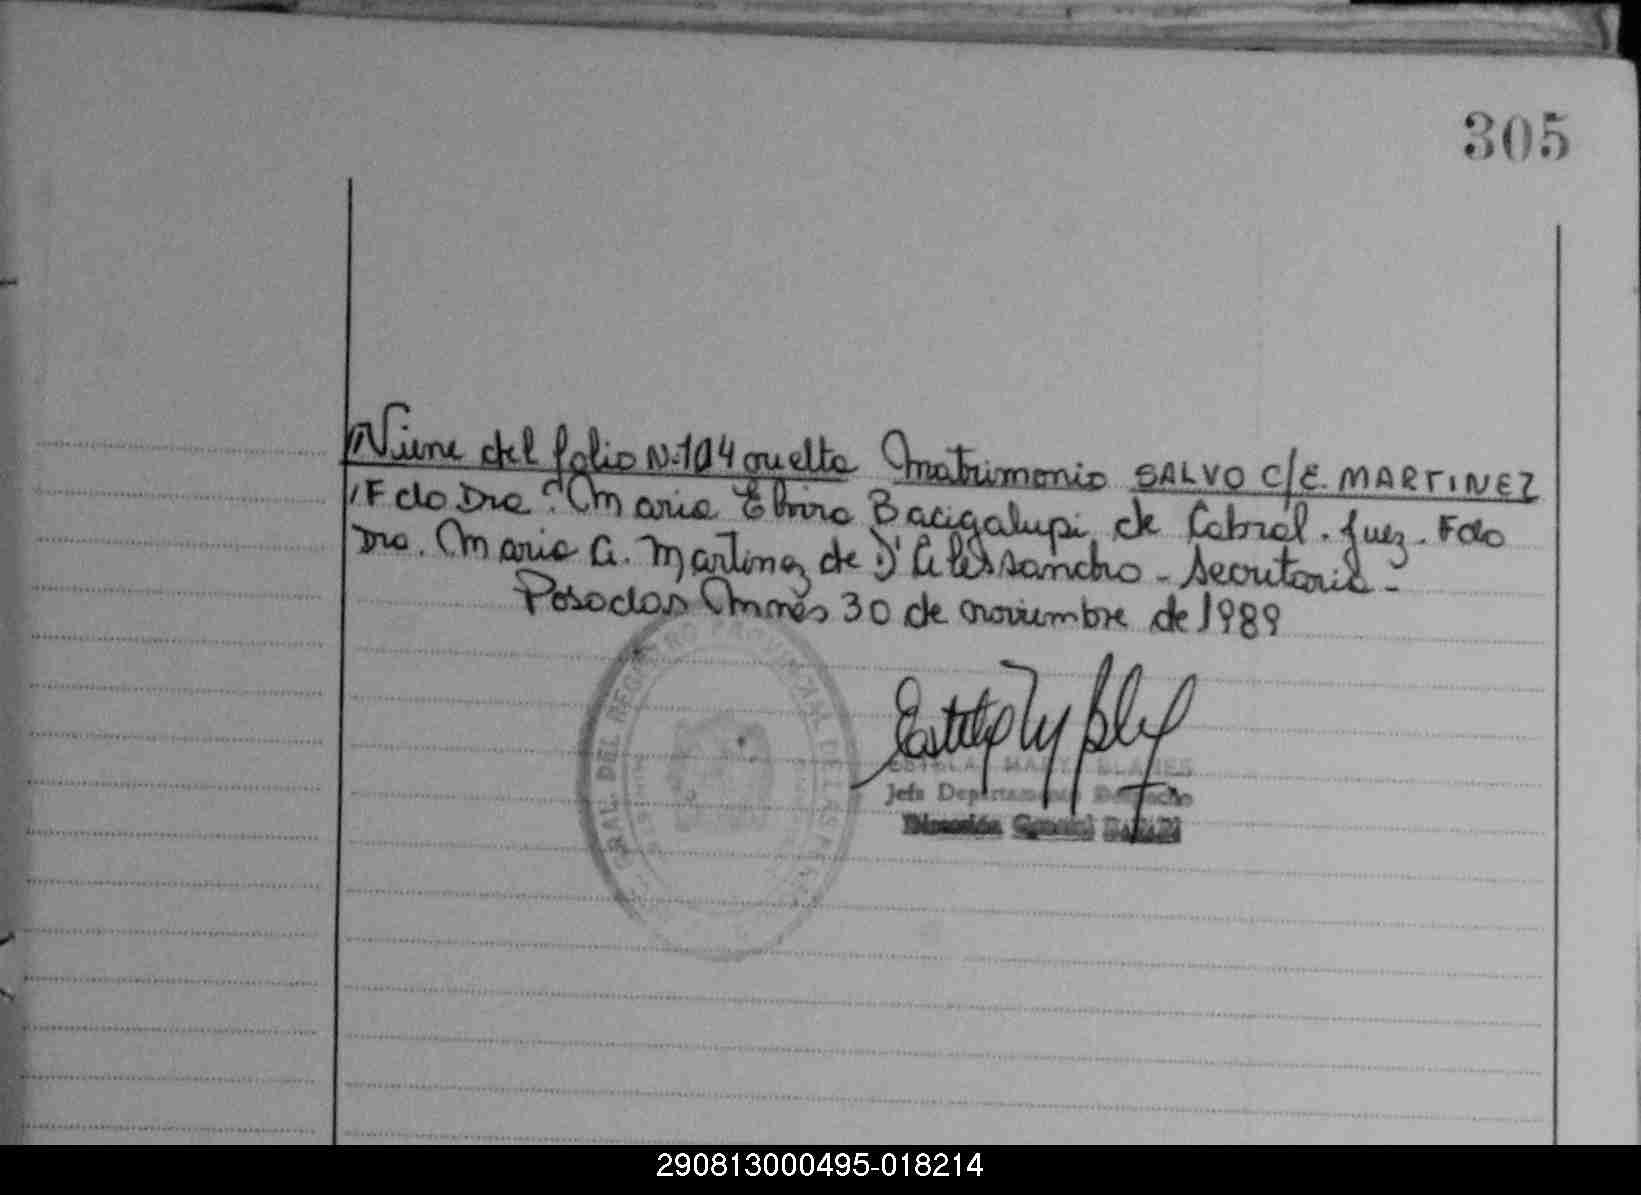 305
//Viene del folio Nº 104 vuelta Matrimonio SALVO C/E. MARTINEZ
/Fdo Dra. Maria Elvira Bacigalupi de Cabral. Juez. Fdo
Dra. Maria A. Martinez de D'Alessandro - Secretaria -
Posadas Mnes 30 de noviembre de 1989
GRAL. DEL REGISTRO PROVINCIAL DE LAS PERS
MISIONES
BLANES
Jefa Departamento Despacho
Dirección General
290813000495-018214